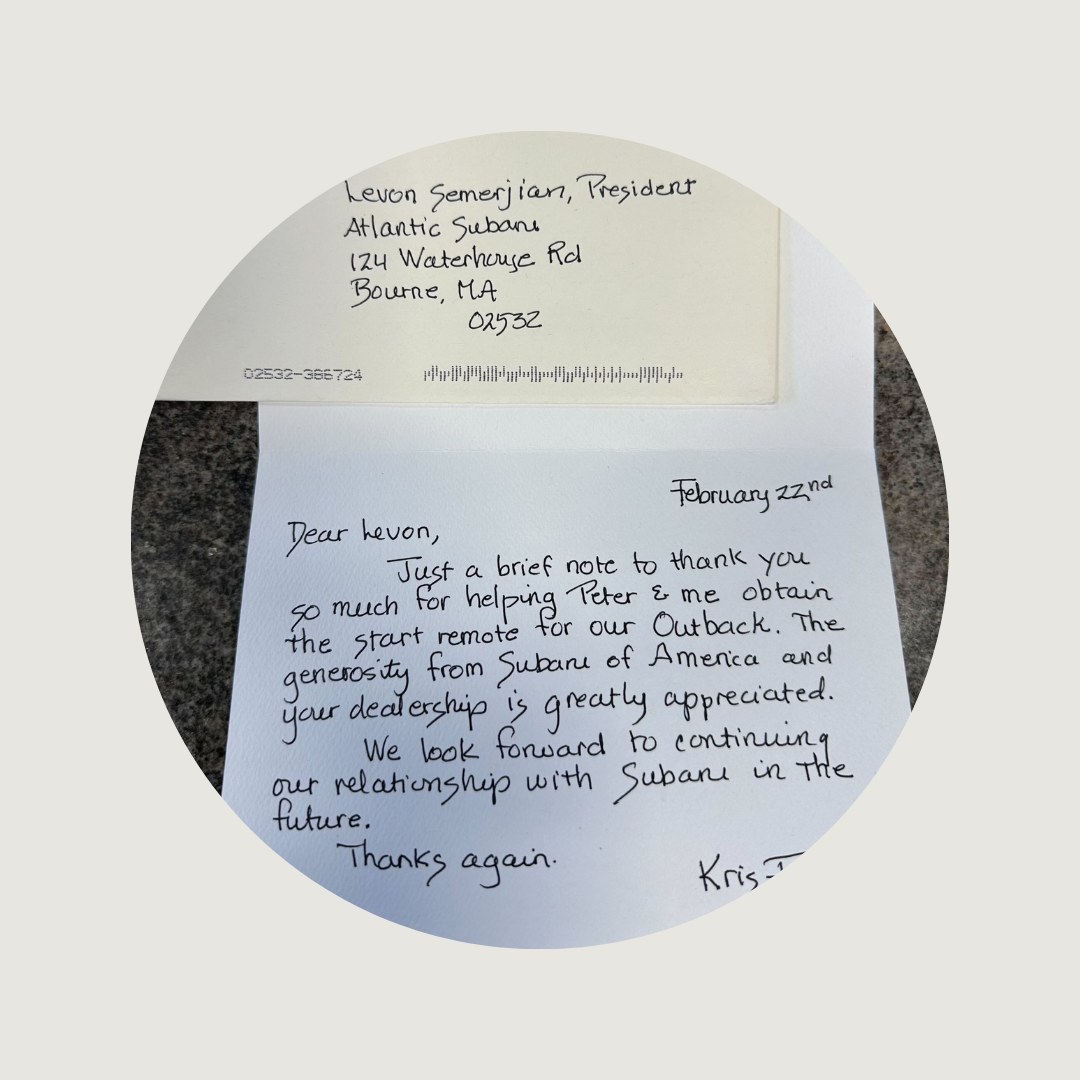 Levon Semerjian, President
Atlantic Subaru
124 Waterhouse Rd
Bourne, MA
02532
02532-386724
February 22nd
Dear Levon,
Just a brief note to thank you
so much for helping Peter & me obtain
the start remote for our Outback. The
generosity from Subaru of America and
your dealership is greatly appreciated.
We look forward to continuing
our relationship with Subaru in the
future.
Thanks again.
Kris